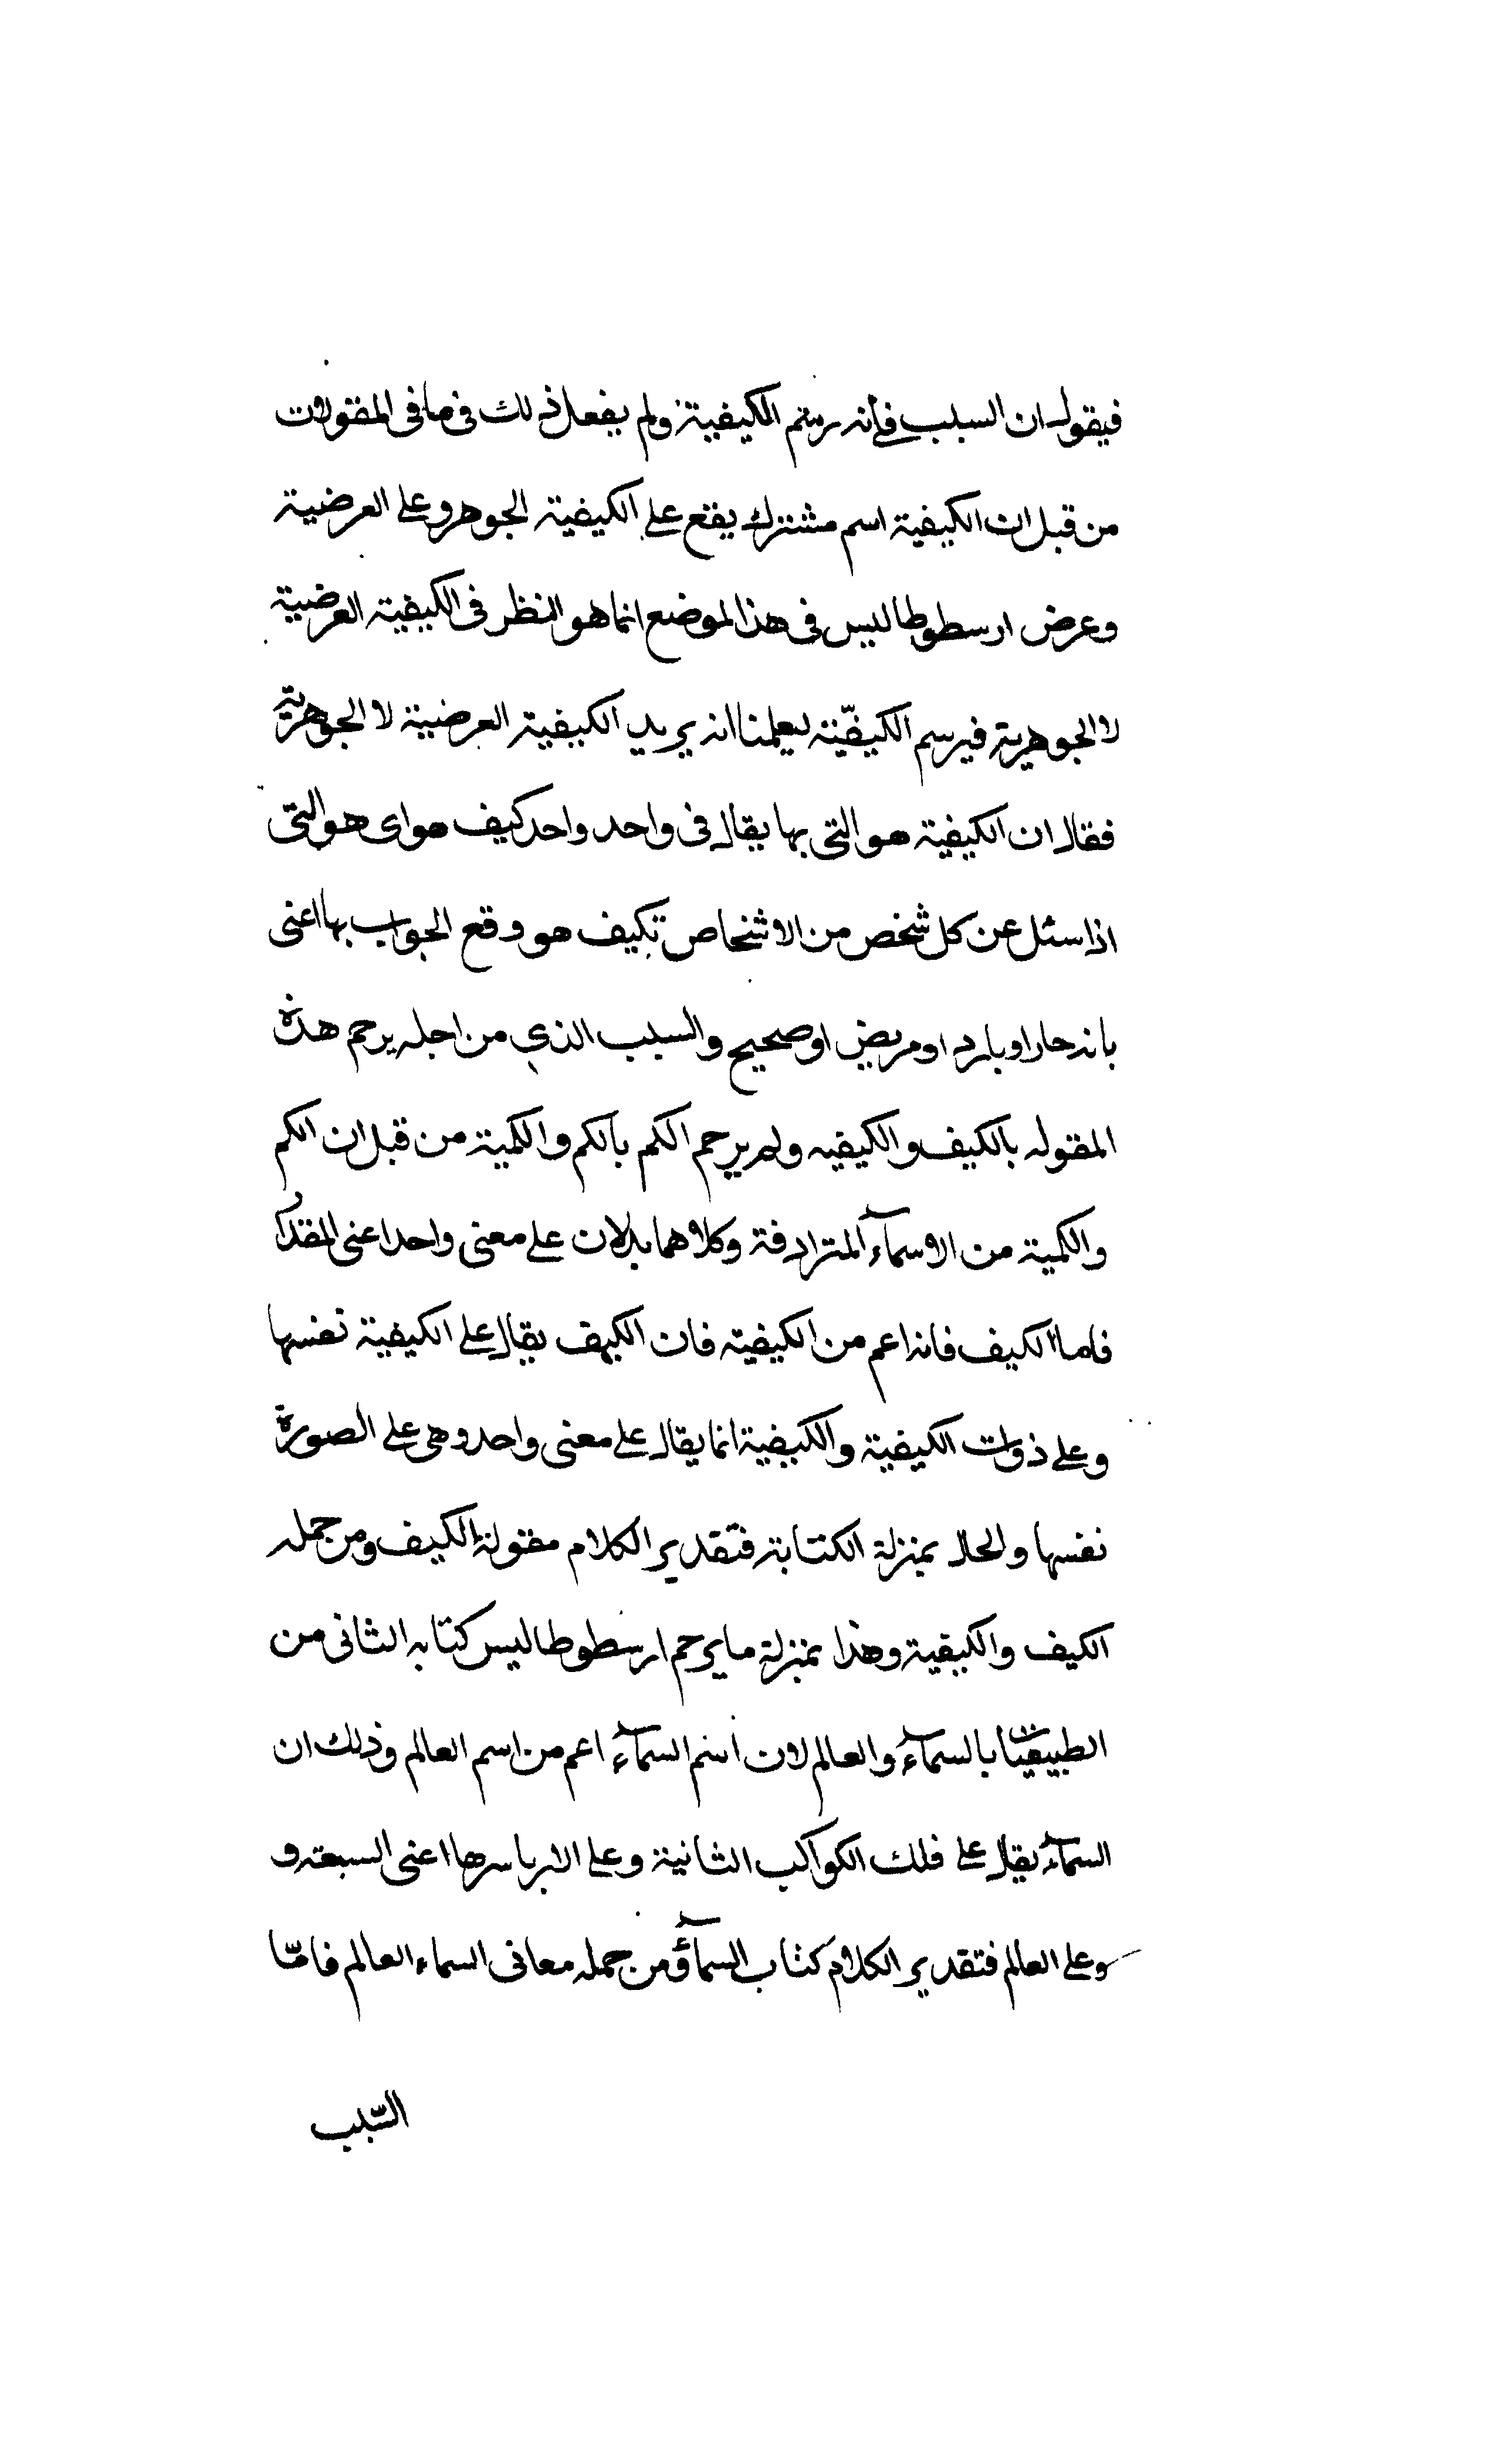 فيقول ان السبب فى انه رسم الكيفية ولم يفعل ذلك فى ما فى المقولات
من قبل ان الكيفية اسم مشترك يقع على الكيفية الجوهر وعلى العرضية
وعرض ارسطوطاليس فى هذا الموضع انما هو النظر فى الكيفية العرضية
لا الجوهرية فيرسم الكيفيّة ليعلمنا انه يريد الكيفية العرضية لا الجوهرية
فقال ان الكيفية هو التى بها يقال فى واحد واحد كيف هو اى هو التى
اذا سئل عن كل شخص من الاشخاص بكيف هو وقع الجواب بها اعنى
بانه حار او بارد او مريض او صحيح والسبب الذي من اجله يرحم هذه
المقوله بالكيف والكيفيه ولم يرحم الكم بالكم والكمية من قبل ان الكم
والكمية من الاسمآء المترادفة وكلاهما يدلان على معنى واحد اعنى المقدار
فاما الكيف فانه اعم من الكيفية فان الكيف يقال على الكيفية نفسها
وعلى ذوات الكيفية والكيفية انما يقال على معنى واحد وهى على الصورة
نفسها والحال بمنزلة الكتابة فتقدير الكلام مقولة الكيف ومن جمله
الكيف والكيفية وهذا بمنزلة ما يرحم ارسطوطاليس كتابه الثانى من
الطبيعيات بالسمآء والعالم لان اسم السمآء اعم من اسم العالم وذلك ان
السمآء يقال على فلك الكواكب الثانية وعلى الاكر باسرها اعنى السبعة و
وعلى العالم فتقدير الكلام كتاب السمآء ومن جمله معانى السماء العالم فامّا
السّبب